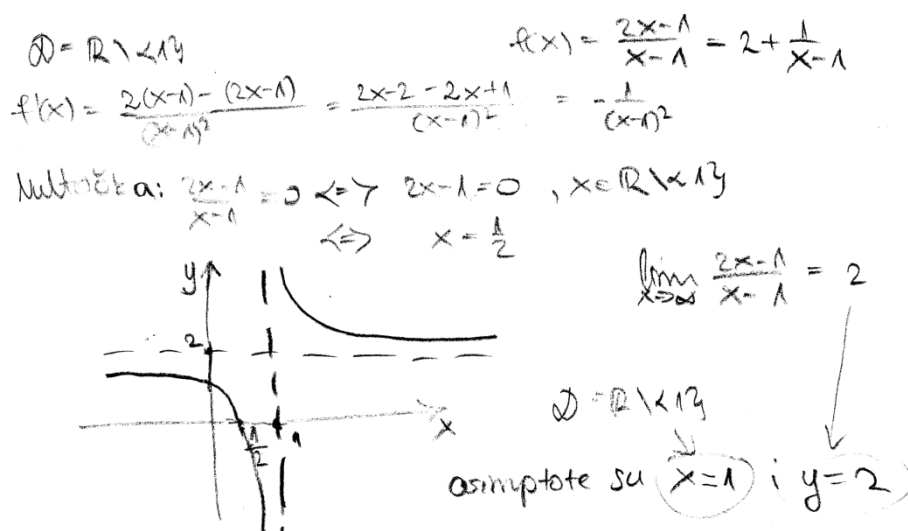 D = R \ {1}
f(x) = (2x-1)/(x-1) = 2 + 1/(x-1)
f'(x) = (2(x-1) - (2x-1))/(x-1)² = (2x-2-2x+1)/(x-1)² = -1/(x-1)²
Nultočka: (2x-1)/(x-1) = 0 <=> 2x-1=0 , x∈R\{1}
<=> x = 1/2
lim x→∞ (2x-1)/(x-1) = 2
y
2
1/2
1
x
D = R\{1}
asimptote su x=1 i y=2